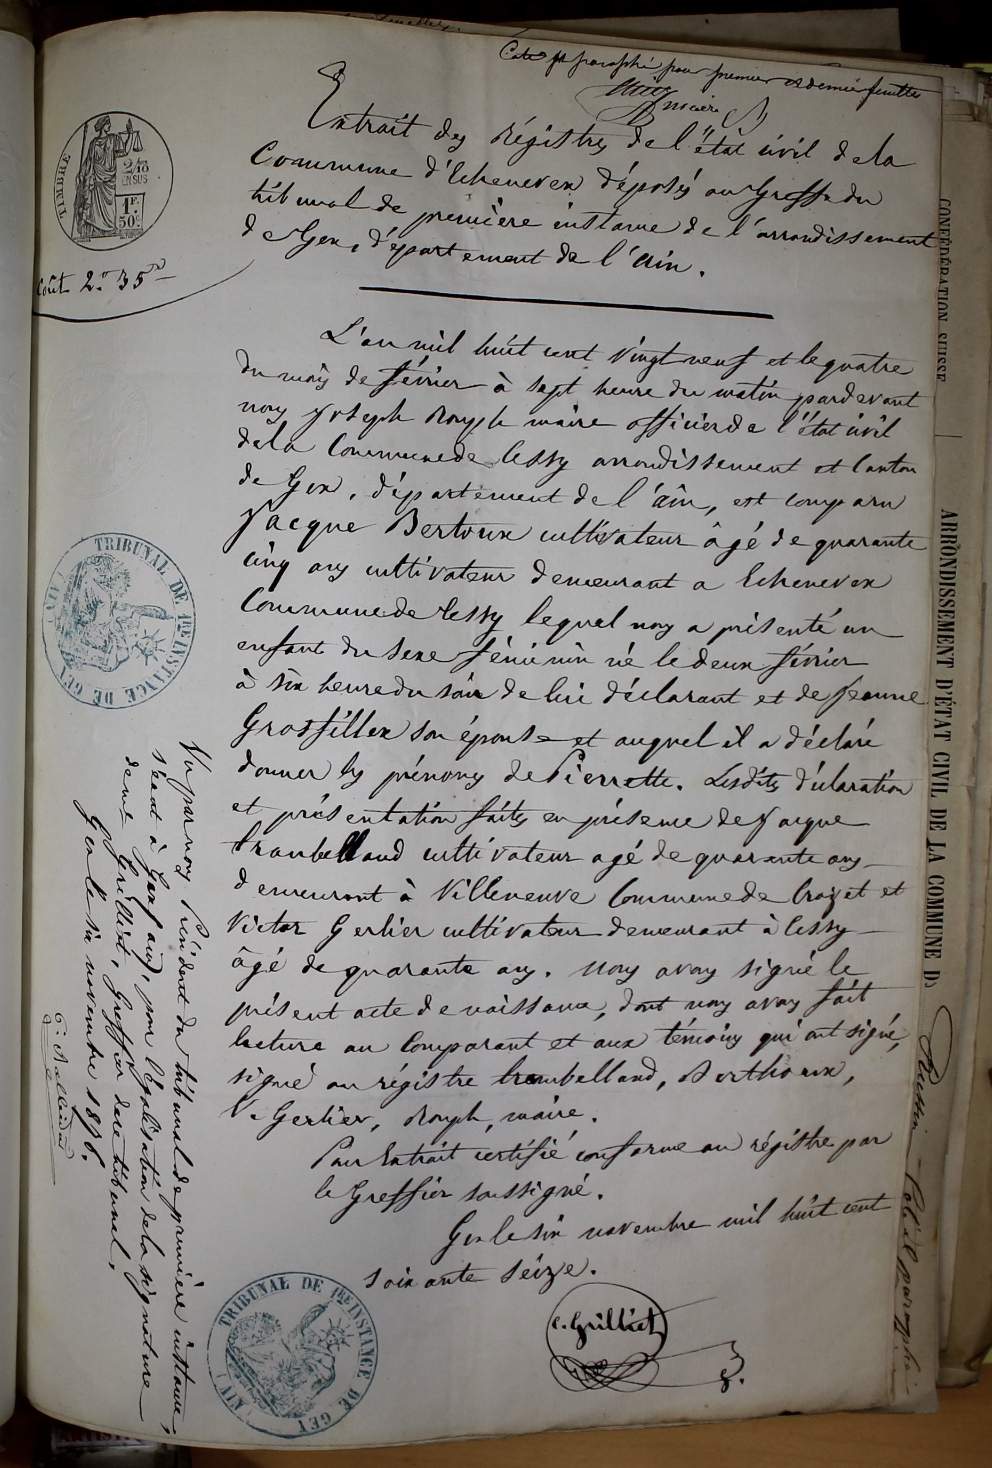 Coté et paraphé pour premier et dernier feuillet
Extrait des Régistres de l'état civil de la
Commune d'Echenevex déposés au Greffe du
tribunal de première instance de l'arrondissement
de Gex, département de l'Ain.
TIMBRE
2/10
EN SUS
1F.
50c.
Coût 2.f 35c
L'an mil huit cent vingt neuf et le quatre
du mois de février à sept heure du matin pardevant
nous Joseph Rouph maire officier de l'état civil
de la Commune de Cessy arrondissement et Canton
de Gex, département de l'ain, est comparu
Jacque Bertoux cultivateur âgé de quarante
cinq ans cultivateur demeurant a Echenevex
Commune de Cessy lequel nous a présenté un
enfant du sexe féminin né le deux février
à six heure du soir de lui déclarant et de Jeanne
Grosfillex son épouse et auquel il a déclaré
donner les prénoms de Pierrette. Lesdites déclaration
et présentation faites en présence de Jacque
trambelland cultivateur agé de quarante ans
demeurant à Villeneuve Commune de Crozet et
Victor Gerlier cultivateur demeurant à Cessy
âgé de quarante ans. Nous avons signé le
présent acte de naissance, dont nous avons fait
lecture au Comparant et aux témoins qui ont signé,
signé au régistre trambelland, Berthoux,
V. Gerlier, Rouph, maire.
Pour Extrait certifié conforme au régistre par
le Greffier soussigné.
Gex le six novembre mil huit cent
soixante seize.
C. Grilliet
TRIBUNAL DE 1RE INSTANCE DE GEX
Vu par nous Président du tribunal de première instance,
séant à Gex, ain, pour légalisation de la signature
de Me Grilliet, Greffier de ce tribunal,
Gex le six novembre 1876.
TRIBUNAL DE 1RE INSTANCE DE GEX
CONFÉDÉRATION SUISSE
ARRONDISSEMENT D'ÉTAT CIVIL DE LA COMMUNE D
Russin